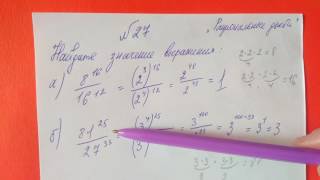 №27 "Рациональные дроби"
Найдите значение выражения:
а) 8^16/16^12 = (2^3)^16/(2^4)^12 = 2^48/2^48 = 1
2·2·2=8
2·2·2·2=16
б) 81^25/27^33 = (3^4)^25/(3 = 3^100/3^99 = 3^100-99 = 3^1 = 3
3·3·3·3=81